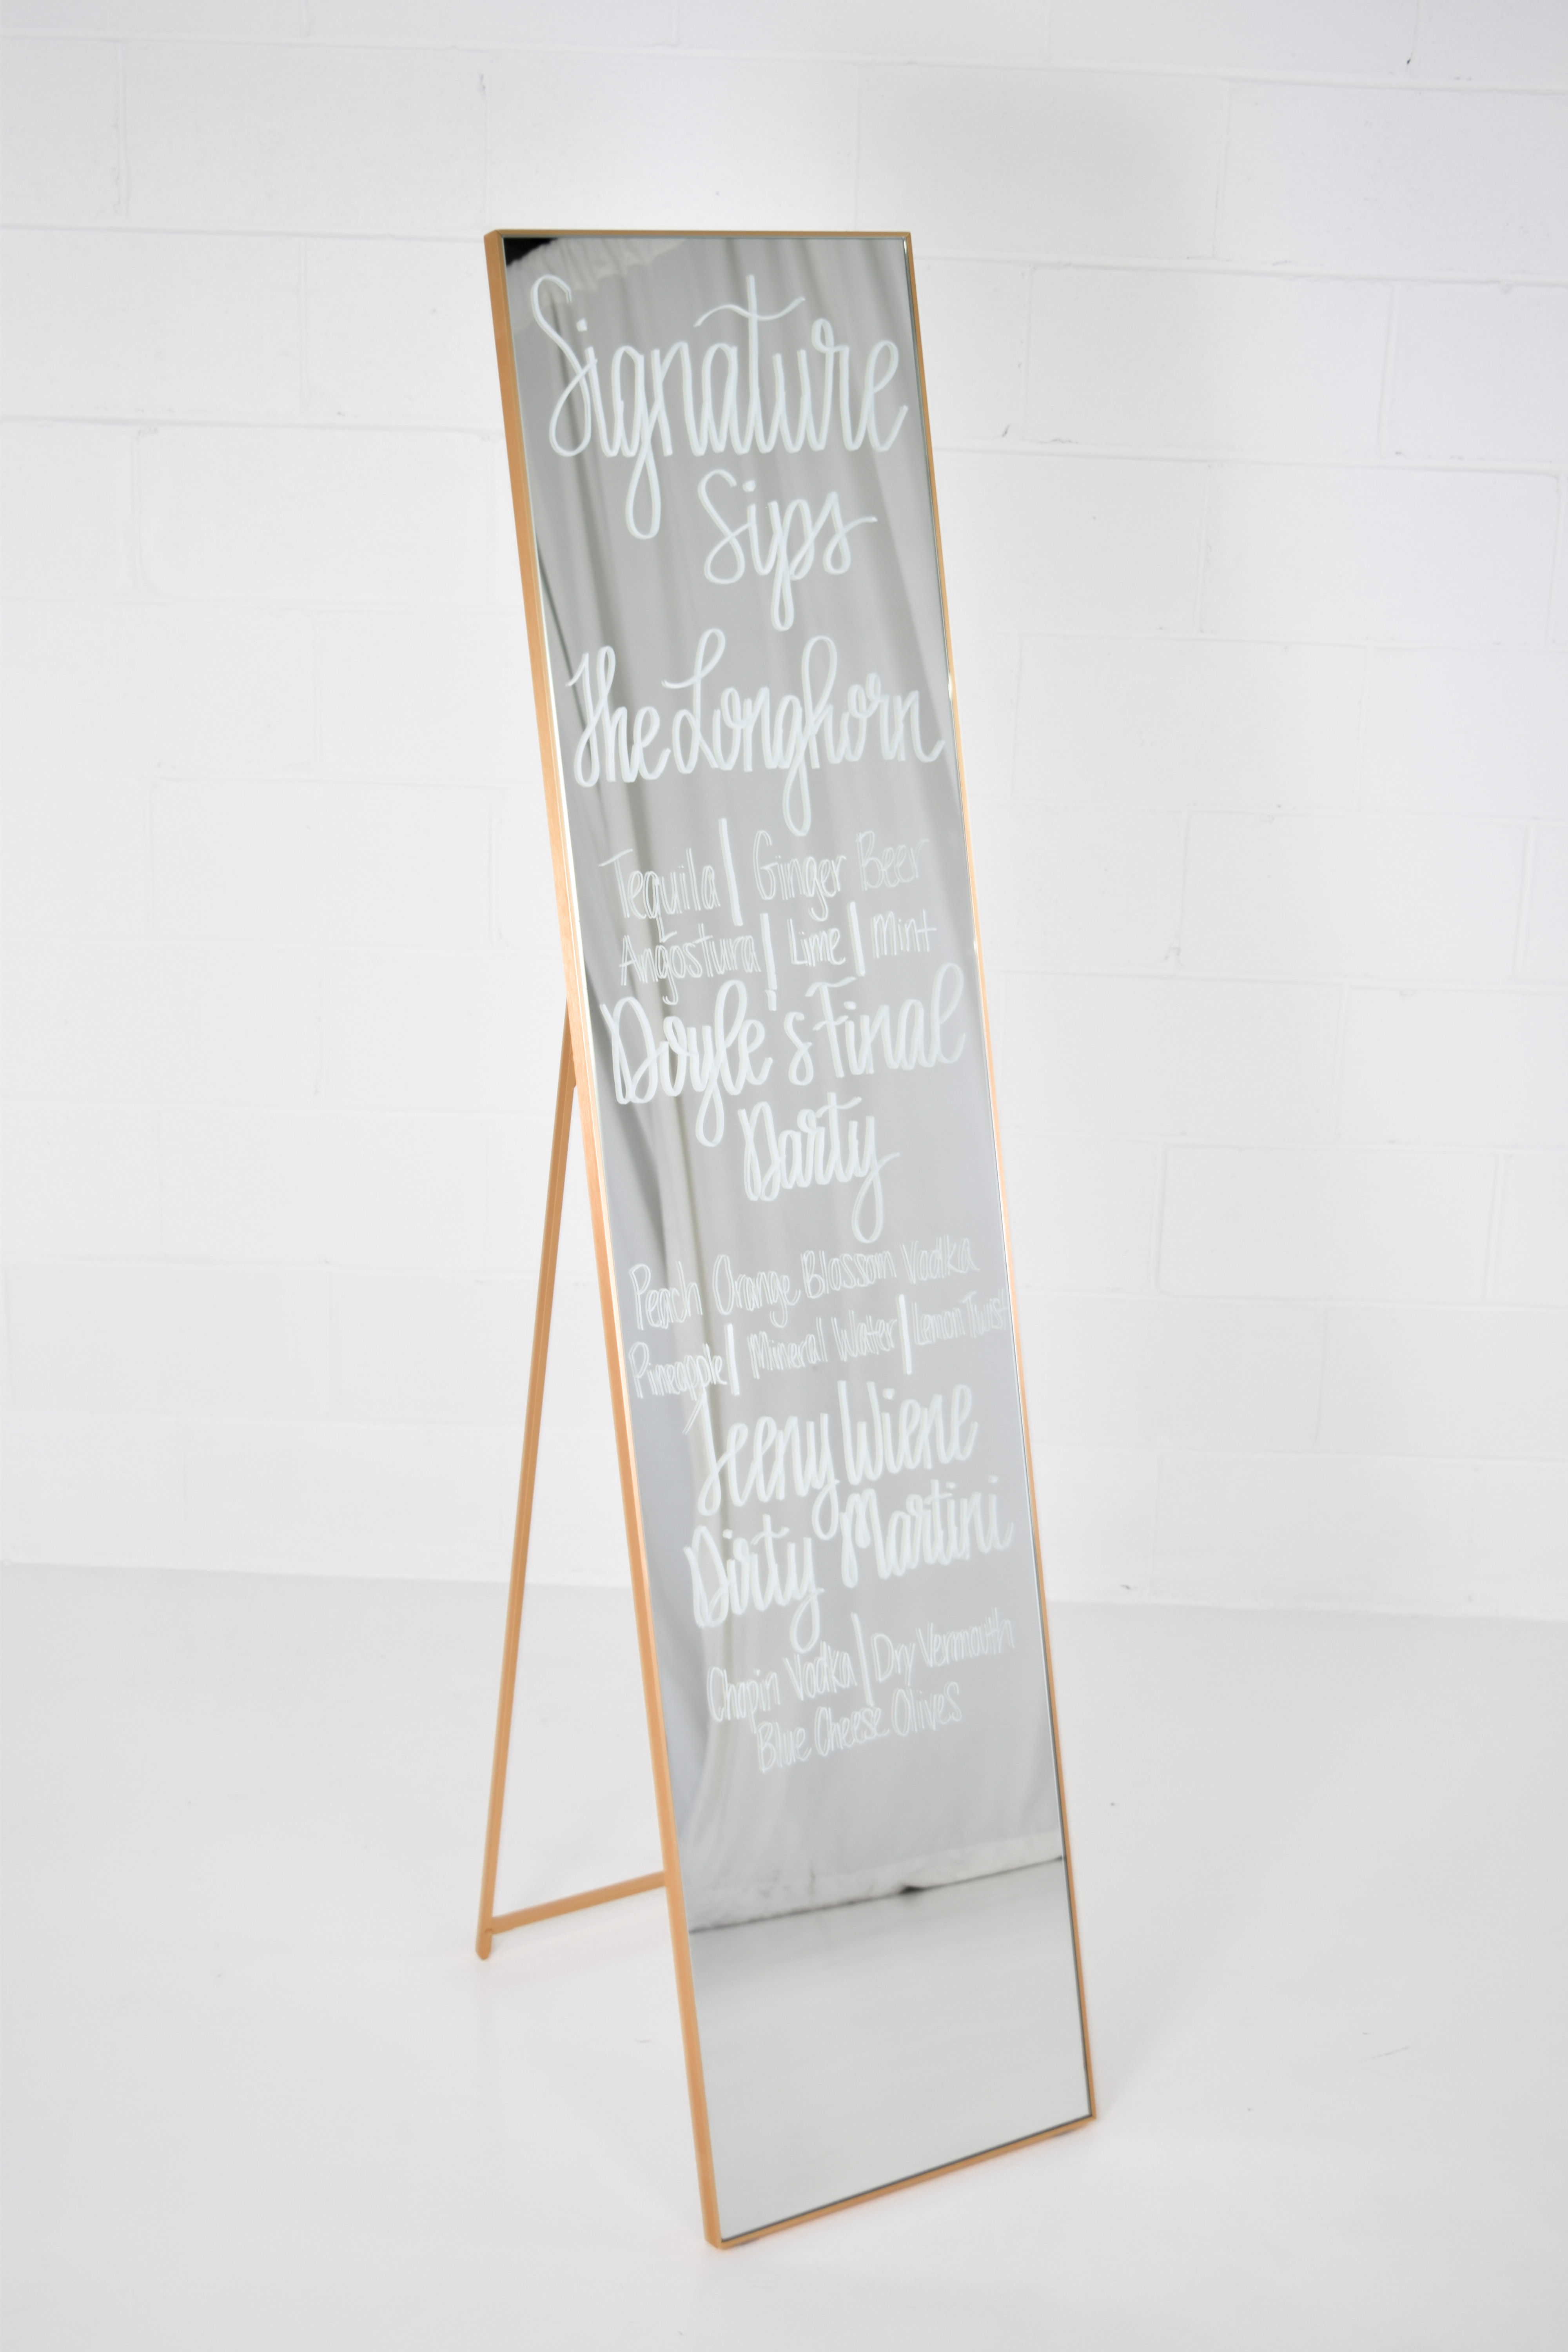 Signature
Sips
The Longhorn
Tequila | Ginger Beer
Angostura | Lime | Mint
Doyle's Final
Party
Peach Orange Blossom Vodka
Pineapple | Mineral Water | Lemon Twist
Teeny Wiene
Dirty Martini
Chopin Vodka | Dry Vermouth
Blue Cheese Olives